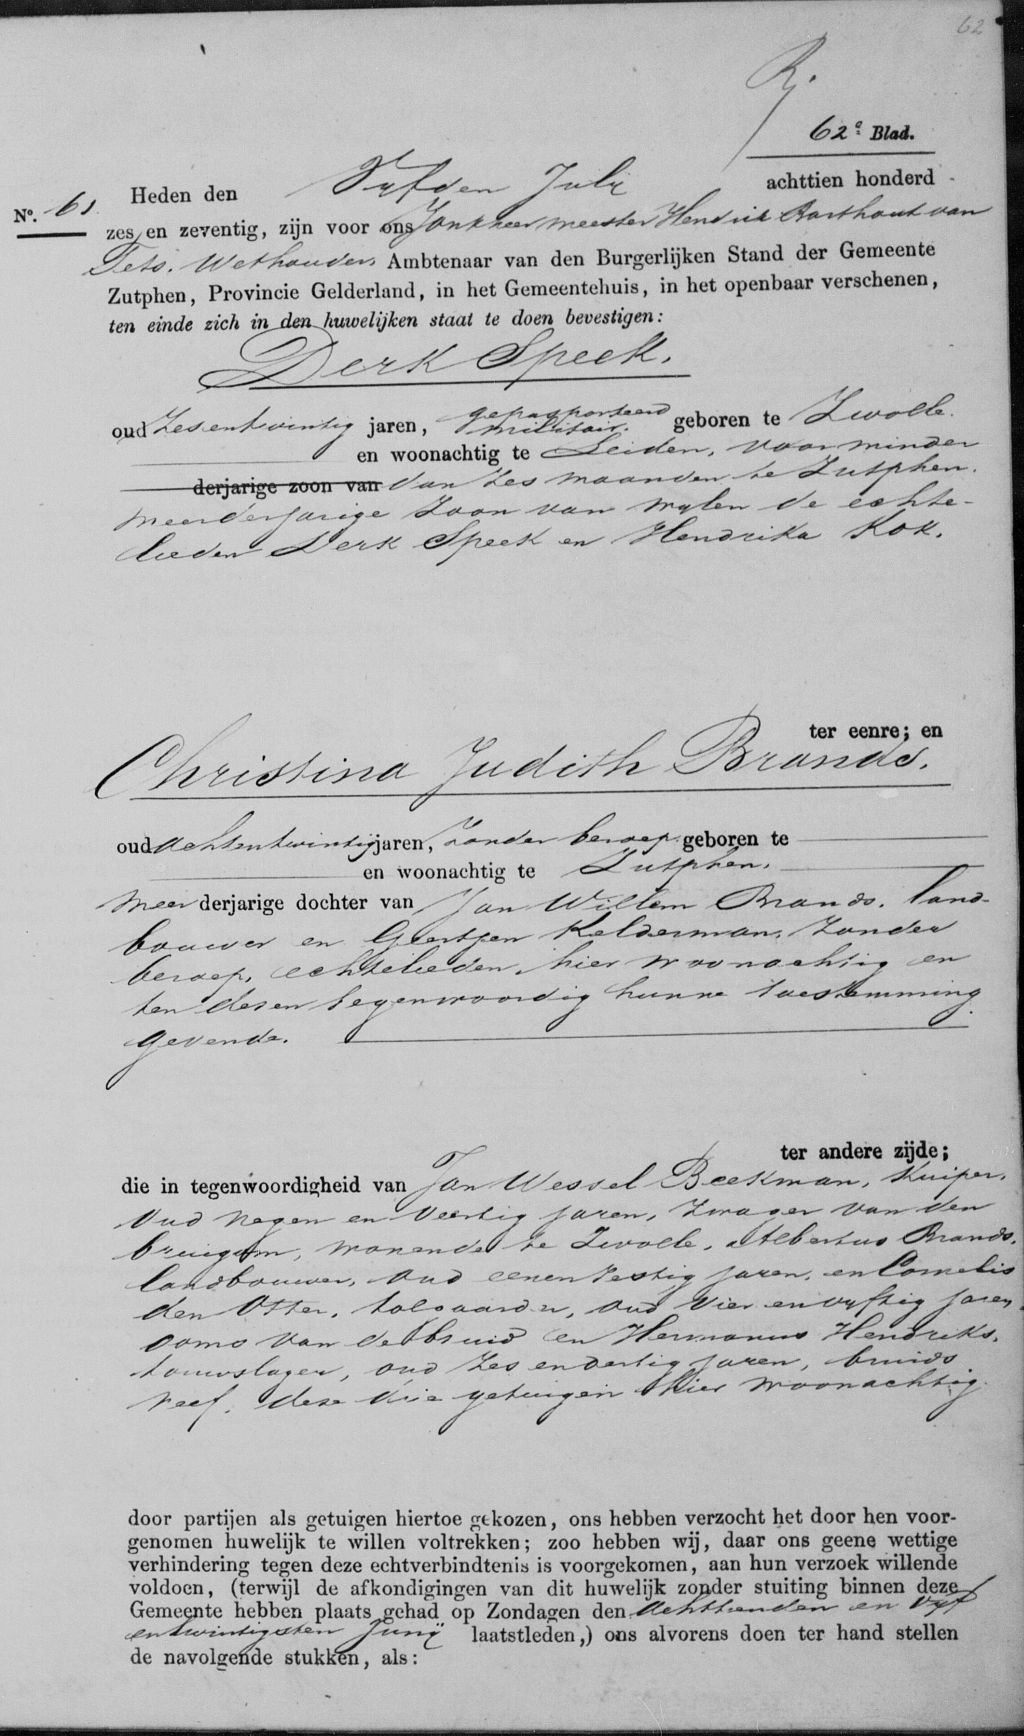 62
R.
62e Blad.
Heden den Vyfden July achttien honderd
No. 61
zes en zeventig, zijn voor ons Jonkheer meester Hendrik Barthout van
Tets, Wethouder, Ambtenaar van den Burgerlijken Stand der Gemeente
Zutphen, Provincie Gelderland, in het Gemeentehuis, in het openbaar verschenen,
ten einde zich in den huwelijken staat te doen bevestigen:
Derk Speek.
oud Zesentwintig jaren, gepasporteerd militair. geboren te Zwolle.
en woonachtig te Leiden, voor minder
derjarige zoon van dan zes maanden te Zutphen.
meerderjarige Zoon van wylen de echte-
lieden Derk Speek en Hendrika Kok.
ter eenre; en
Christina Judith Brands.
oud achtentwintig jaren, Zonder beroep. geboren te
en woonachtig te Zutphen.
meer derjarige dochter van Jan Willem Brands. land-
bouwer en Geertjen Kelderman, Zonder
beroep, echtelieden, hier woonachtig en
ten dezen tegenwoordig hunne toestemming
gevende.
ter andere zijde;
die in tegenwoordigheid van Jan Wessel Beekman, Kuiper,
Oud negen en Veertig jaren, Zwager van den
bruigom, wonende te Zwolle, Albertus Brands,
landbouwer, Oud eenenzestig jaren, en Cornelis
den Otter, tolgaarder, oud Vier en vyftig jaren
ooms van de bruid en Hermanus Hendriks,
touwslager, oud Zes en dertig jaren, bruids
neef. deze drie getuigen hier woonachtig.
door partijen als getuigen hiertoe gekozen, ons hebben verzocht het door hen voor-
genomen huwelijk te willen voltrekken; zoo hebben wij, daar ons geene wettige
verhindering tegen deze echtverbindtenis is voorgekomen, aan hun verzoek willende
voldoen, (terwijl de afkondigingen van dit huwelijk zonder stuiting binnen deze
Gemeente hebben plaats gehad op Zondagen den Achttienden en Vyf
entwintigsten Juny laatstleden,) ons alvorens doen ter hand stellen
de navolgende stukken, als: